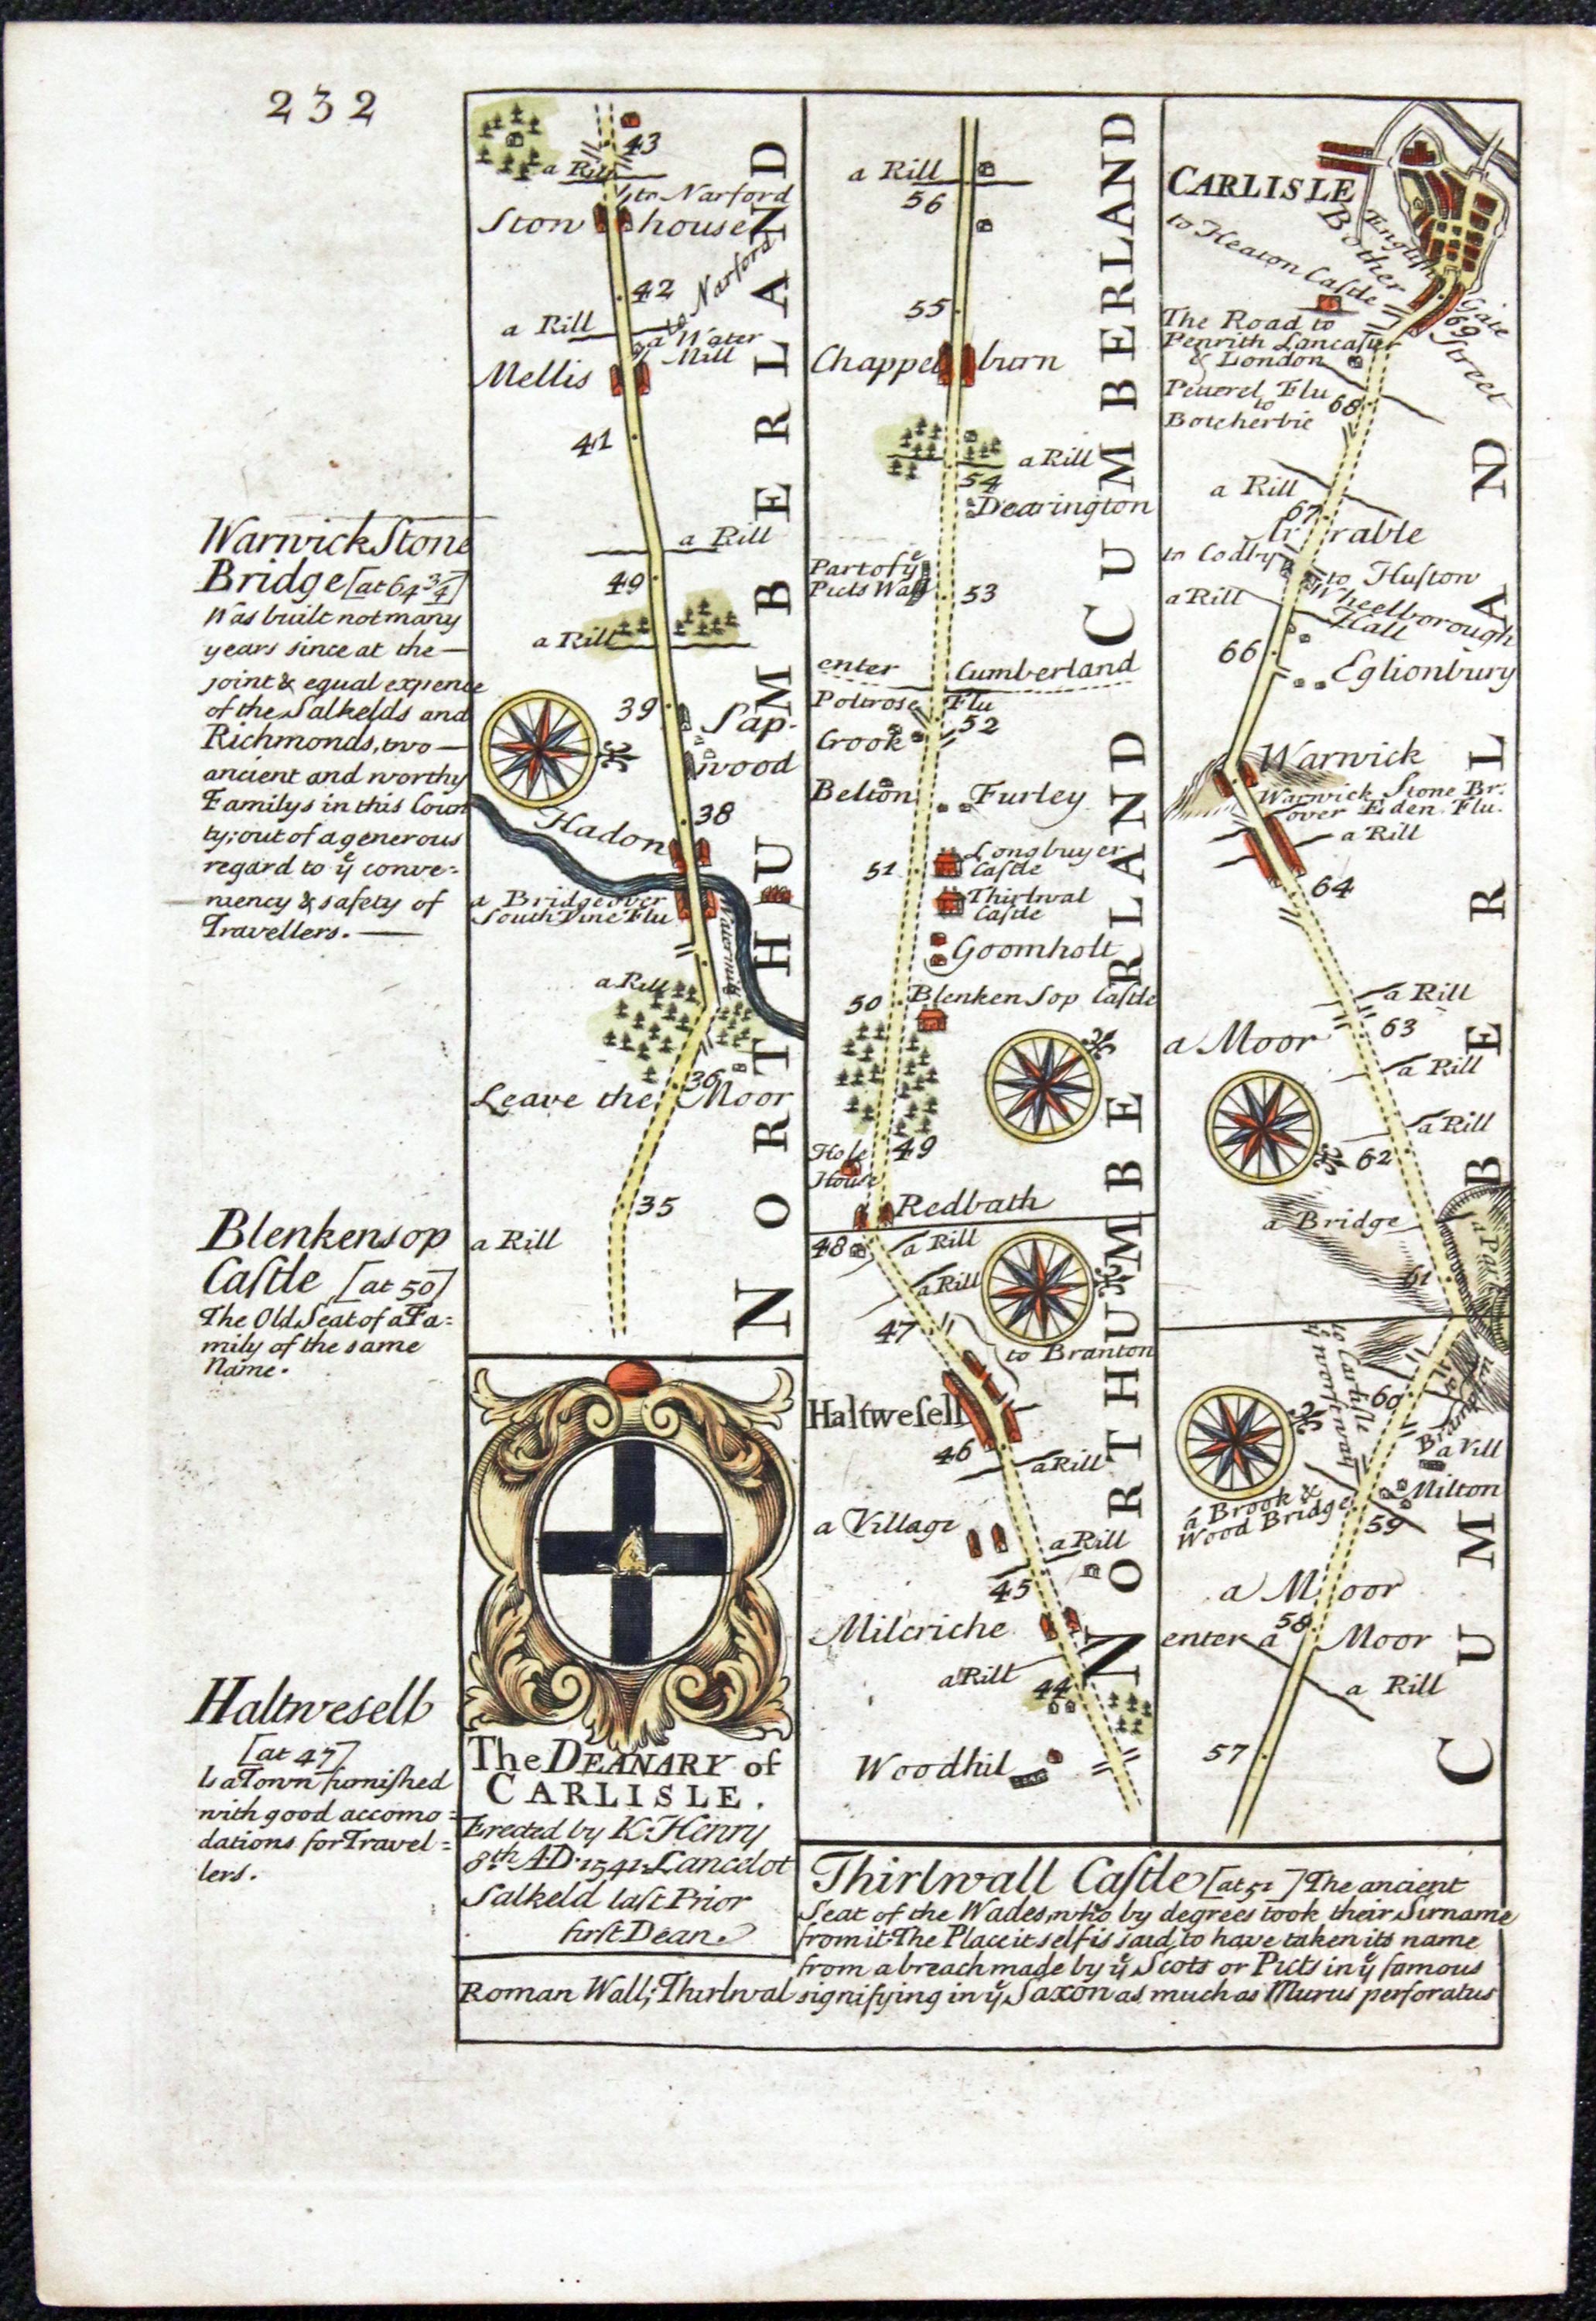 232
Warwick Stone
Bridge [at 64 3/4]
Was built not many
years since at the —
joint & equal expence
of the Salkelds and
Richmonds, two —
ancient and worthy
Familys in this Coun
ty; out of a generous
regard to yͤ conve-
niency & safety of
Travellers. —
Blenkensop
Caſtle [at 50]
The Old Seat of a Fa-
mily of the same
Name.
Haltwesell
[at 47]
is a Town furniſhed
with good accomo-
dations for Travel-
lers.
43
a Rill
to Narford
Ston house
42
to Narford
a Rill
a Water
Mill
Mellis
41
a Rill
49
a Rill
39
Sap-
wood
38
Hadon
a Bridge over
South Tine Flu
Watermills
a Rill
36
Leave the Moor
35
a Rill
NORTHUMBERLAND
The DEANARY of
CARLISLE.
Erected by K. Henry
8th A.D. 1542. Lancelot
Salkeld laſt Prior
firſt Dean.
a Rill
56
55
Chappel burn
a Rill
54
Dearington
Part of yͤ
Picts Wall
53
enter Cumberland
Poltrose Flu
52
Crook
Belton
Furley
51
Longbuyer
Caſtle
Thirlwal
Caſtle
Goomholt
50
Blenken Sop Caſtle
49
Hole
House
Redbath
CUMBERLAND
48
a Rill
a Rill
47
to Branton
Haltweſell
46
a Rill
a Village
a Rill
45
Milcriche
a Rill
44
Woodhil
NORTHUMBERLAND
CARLISLE
English
Bother
Gate
Street
to Heaton Caſtle
69
The Road to
Penrith Lancaſter
& London
Peterel Flu
68
to
Botcherbie
a Rill
67
rable
to Codby
to Huſton
a Rill
Wheelborough
Hall
66
Eglionbury
Warwick
Warwick Stone Br.
over Eden Flu.
a Rill
64
a Rill
63
a Moor
a Rill
a Rill
62
a Bridge
61
to Carliſle
yͤ worſt way
60
to
Brampton
a Vill
Milton
a Brook &
Wood Bridge
59
a Moor
58
enter a Moor
a Rill
57
CUMBERLAND
Thirlwall Caſtle [at 51] The ancient
Seat of the Wades, who by degrees took their Sirname
from it. The Place it self is said to have taken its name
from a breach made by yͤ Scots or Picts in yͤ famous
Roman Wall; Thirlwal signifying in yͤ Saxon as much as Murus perforatus